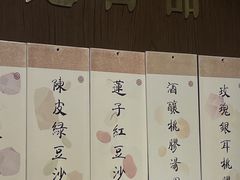 陳皮綠豆沙
蓮子紅豆沙
酒釀桃膠湯
玫瑰銀耳桃